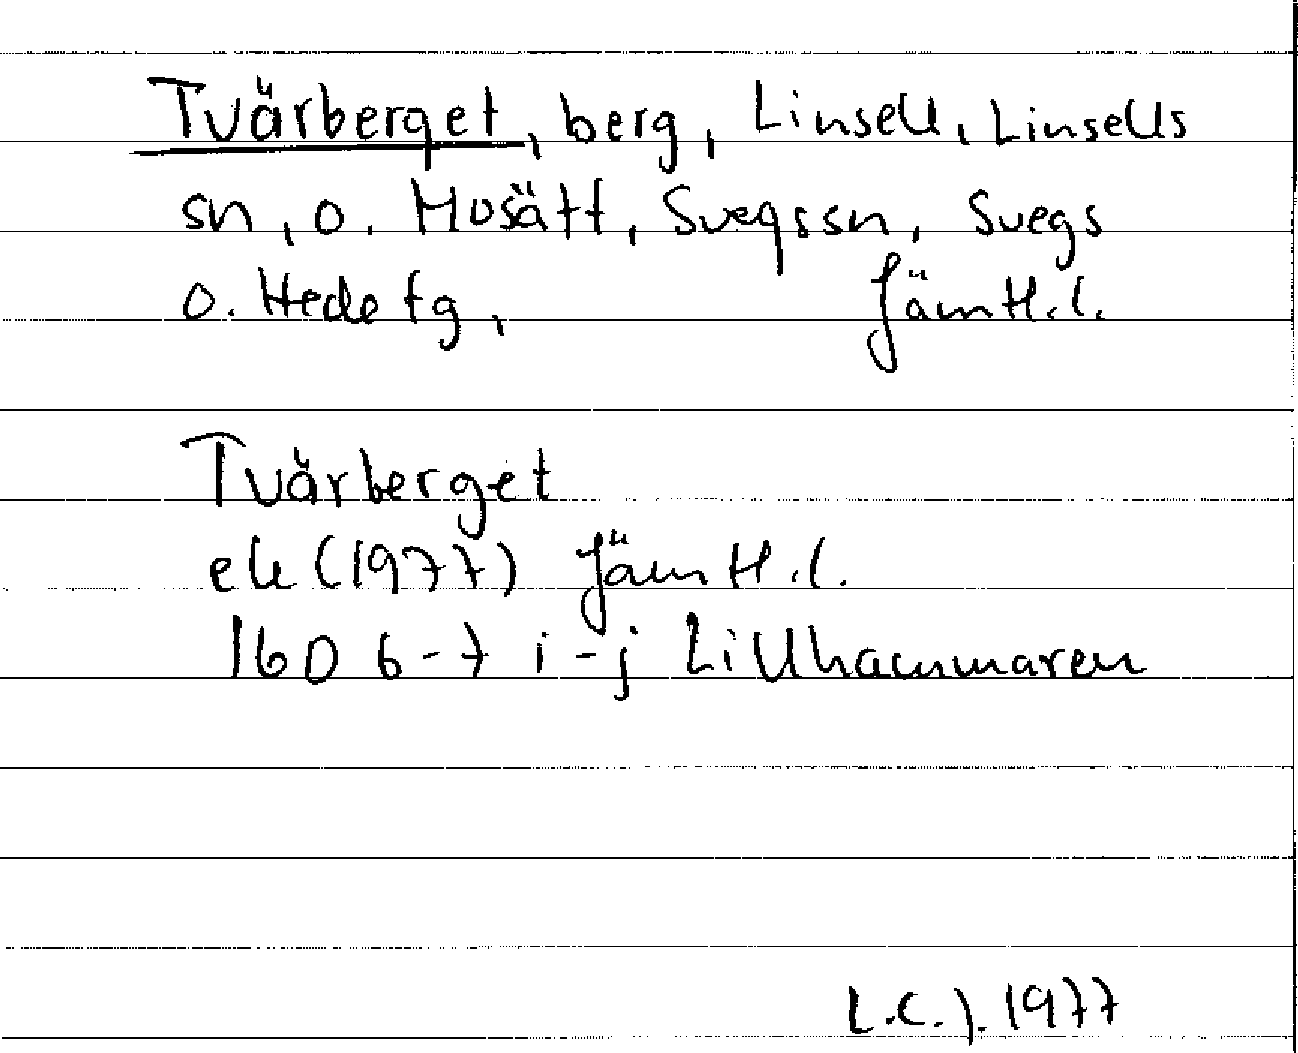 Tvärberget, berg, Linsell, Linsells
sn, o. Mosätt, Svegssn, Svegs
o. Hede tg, Jämtl.l.
Tvärberget
ek (1977) Jämtl.l.
16D 6-7 i-j Lillhammaren
L.C.J. 1977